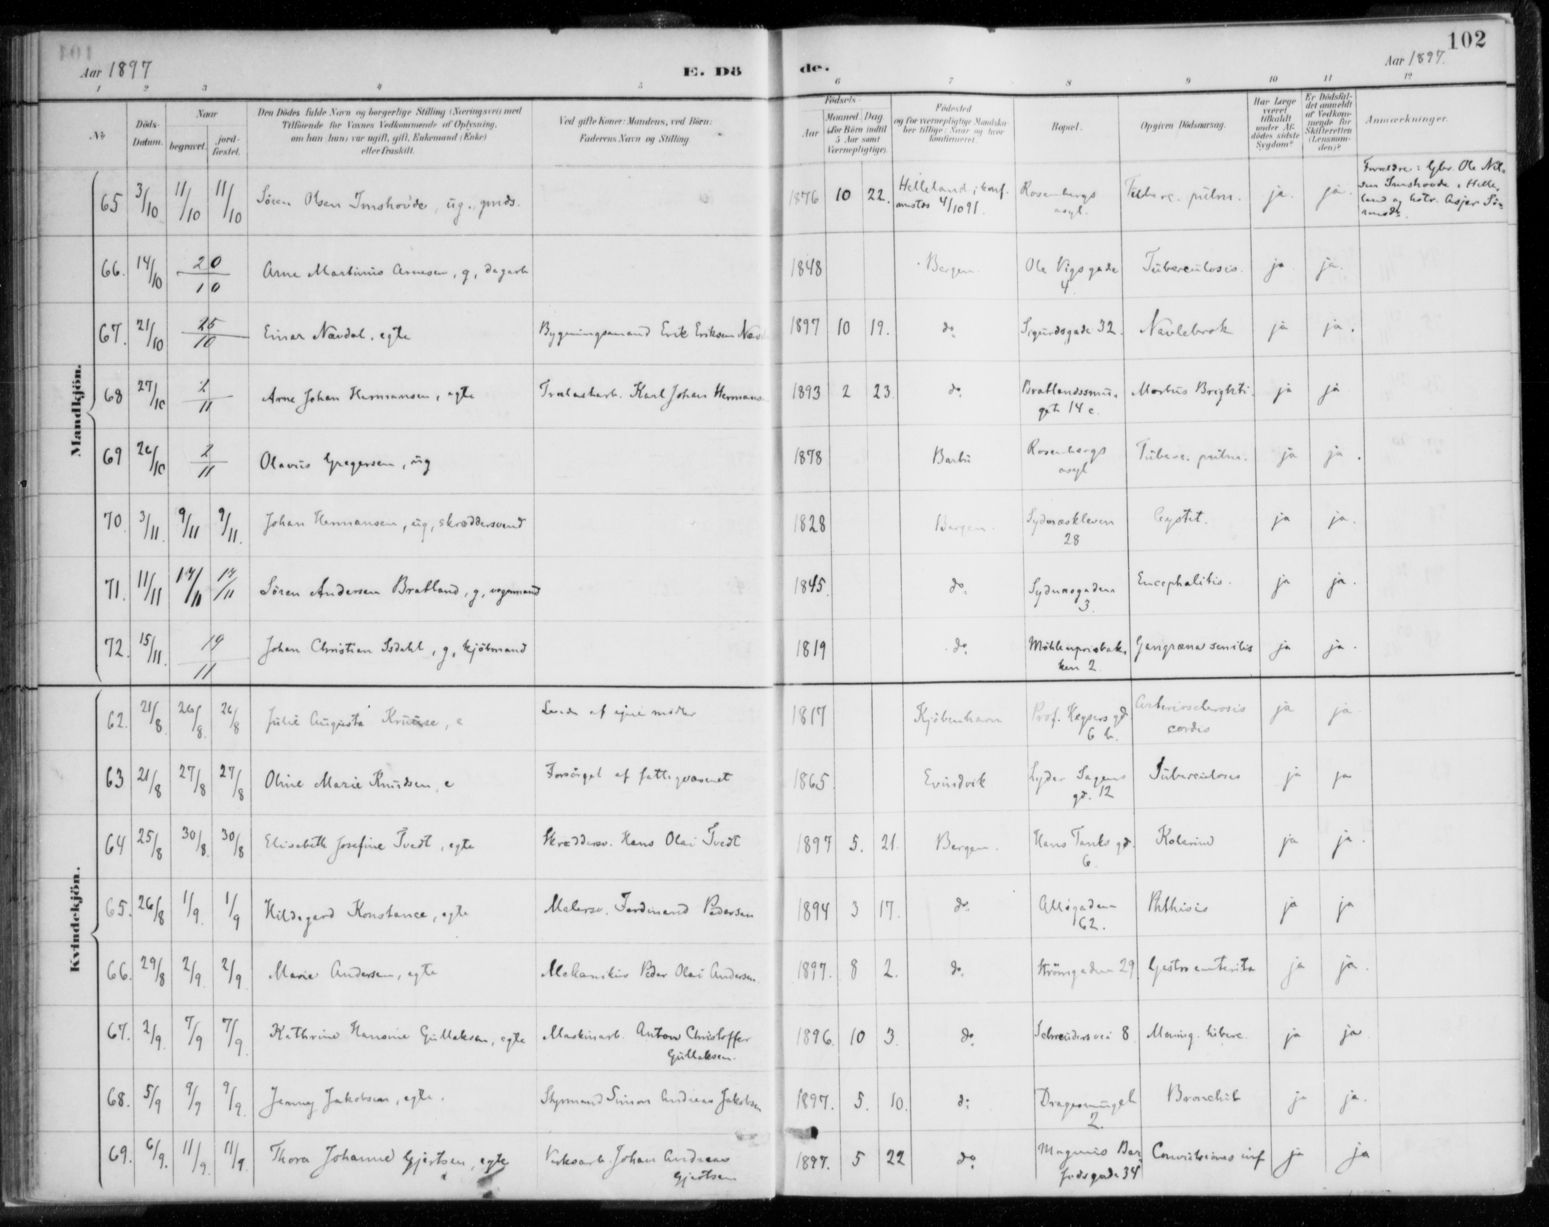 102
Aar 1897
E. Dö
de.
Aar 1897.
1 2 3 4 5 6 7 8 9 10 11 12
No
Döds-Datum.
Naar
begravet.
jord-fæstet.
Den Dödes fulde Navn og borgerlige Stilling (Næringsvei) med
Tilföiende for Voxnes Vedkommende af Oplysning,
om han (hun) var ugift, gift, Enkemand (Enke)
eller fraskilt.
Ved gifte Koner: Mandens, ved Börn:
Faderens Navn og Stilling
Födsels-
Aar
Maaned Dag
(for Börn indtil
5 Aar samt
Værnepligtige)
Födested
og for værnepligtige Mandska-
ber tillige: Naar og hvor
konfirmeret.
Bopæl.
Opgiven Dödsaarsag.
Har Læge
været
tilkaldt
under Af-
dödes sidste
Sygdom?
Er Dödsfal-
det anmeldt
af Vedkom-
mende for
Skifteretten
(Lensman-
den)?
Anmærkninger.
Mandkjön.
65 3/10 11/10 11/10 Sören Olsen Imshovde, ug. gmds. 1876 10 22. Helleland; konf. 4/10 91. Rosenbergs asyl. Tuberc. pulm. ja. ja. Forældre: Gbr. Ole Nilsen Imshovde, Helleland og hstr.
66. 14/10 20/10 Arne Martinus Arnesen, g, dagarb 1848 Bergen Ole Vigs gade 4. Tuberculosis. ja ja.
67. 21/10 25/10 Einar Nævdal, egte Bygningsmand Erik Eriksen Næv 1897 10 19. do. Sigurdsgade 32. Navlebrok ja ja.
68 27/10 2/11 Arne Johan Hermansen, egte Trælastarb. Karl Johan Hermans 1893 2 23 do. Bratlandssmug. 14 c. Morbus Brighti. ja ja
69 26/10 2/11 Olavus Gregersen, ug 1878 Barbu Rosenbergs asyl Tuberc. pulm. ja ja.
70. 3/11. 9/11 9/11. Johan Hermansen, ug, skræddersvend 1828 Bergen. Sydnæskleven 28 Cystit. ja ja.
71. 11/11 14/11 14/11 Sören Andersen Bratland, g, vognmand 1845. do. Sydnæsgaden 3. Encephalitis. ja ja.
72. 15/11. 19/11 Johan Christian Isdahl, g, kjöbmand 1819 do. Möhlenprisbakken 2. Gangræna senilis ja ja.
Kvindekjön.
62. 21/8. 26/8. 26/8 Julie Augusta Kruuse, e Leved af egne midler 1817 Kjöbenhavn Prof. Keysers gd. 6 b. Arteriosclerosis cordis ja ja.
63 21/8 27/8 27/8 Oline Marie Knudsen, e Forsörget af fattigvæsenet 1865. Evindvik Lyder Sagens gd. 12 Tuberculosis ja ja
64 25/8 30/8. 30/8 Elisabeth Josefine Tvedt, egte Skræddersv. Hans Olai Tvedt 1897 5. 21. Bergen. Hans Tanks gd. 6. Kolerine ja ja.
65. 26/8 1/9. 1/9 Hildegard Konstance, egte Malersv. Ferdinand Pedersen 1894 3 17. do. Allégaden 62. Phthisis ja ja
66. 29/8 2/9. 2/9. Marie Andersen, egte Mekanikus Peder Olai Andersen 1897. 8 2. do. Strömgaden 29 Gastro enterite ja ja.
67. 2/9. 7/9 7/9. Kathrine Hansine Gullaksen, egte Maskinarb. Anton Christoffer Gullaksen. 1896. 10 3. do. 8. Mening. tuberc. ja ja
68. 5/9 9/9 9/9. Jenny Jakobsen, egte. Styrmand Simon Andreas Jakobsen 1897. 5. 10. do. Dragesmuget 2. Bronchit ja ja.
69. 6/9. 11/9. 11/9. Thora Johanne Gjertsen, egte Verksarb. Johan Andreas Gjertsen 1897. 5 22 do Magnus Barfodsgade 34 Convulsiones inf ja ja